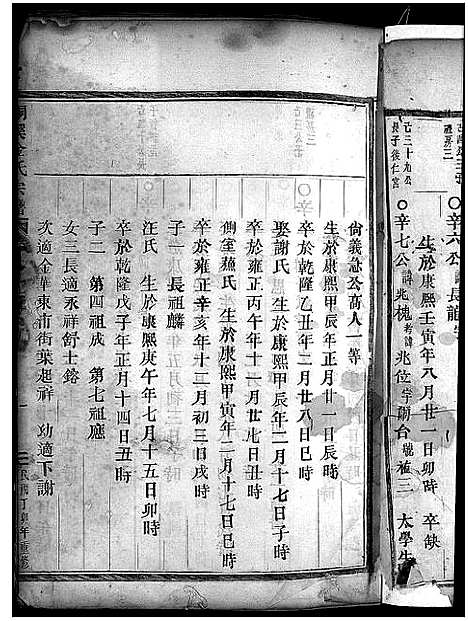 己三十九公
長子後仁宮
○辛六公
諱長龍
生於康熙壬寅年八月廿一日卯時 卒缺
○辛七公諱兆槐 考諱兆位字朝台號福三 太學生
尙義急公高人一等
生於康熙甲辰年正月廿一日辰時
卒於乾隆乙丑年二月廿八日巳時
娶謝氏 生於康熙甲辰年二月十七日子時
卒於雍正丙午年十一月廿七日丑時
側室蕉氏 生於康熙甲寅年二月十七日巳時
卒於雍正辛亥年十二月初三日戌時
子一 長祖麟
汪氏 生於康熙庚午年七月十五日卯時
卒於乾隆戊子年正月十四日丑時
子二 第四祖成 第七祖應
女三長適永祥舒士鎔
次適金華東市街葉起祥 幼適下謝